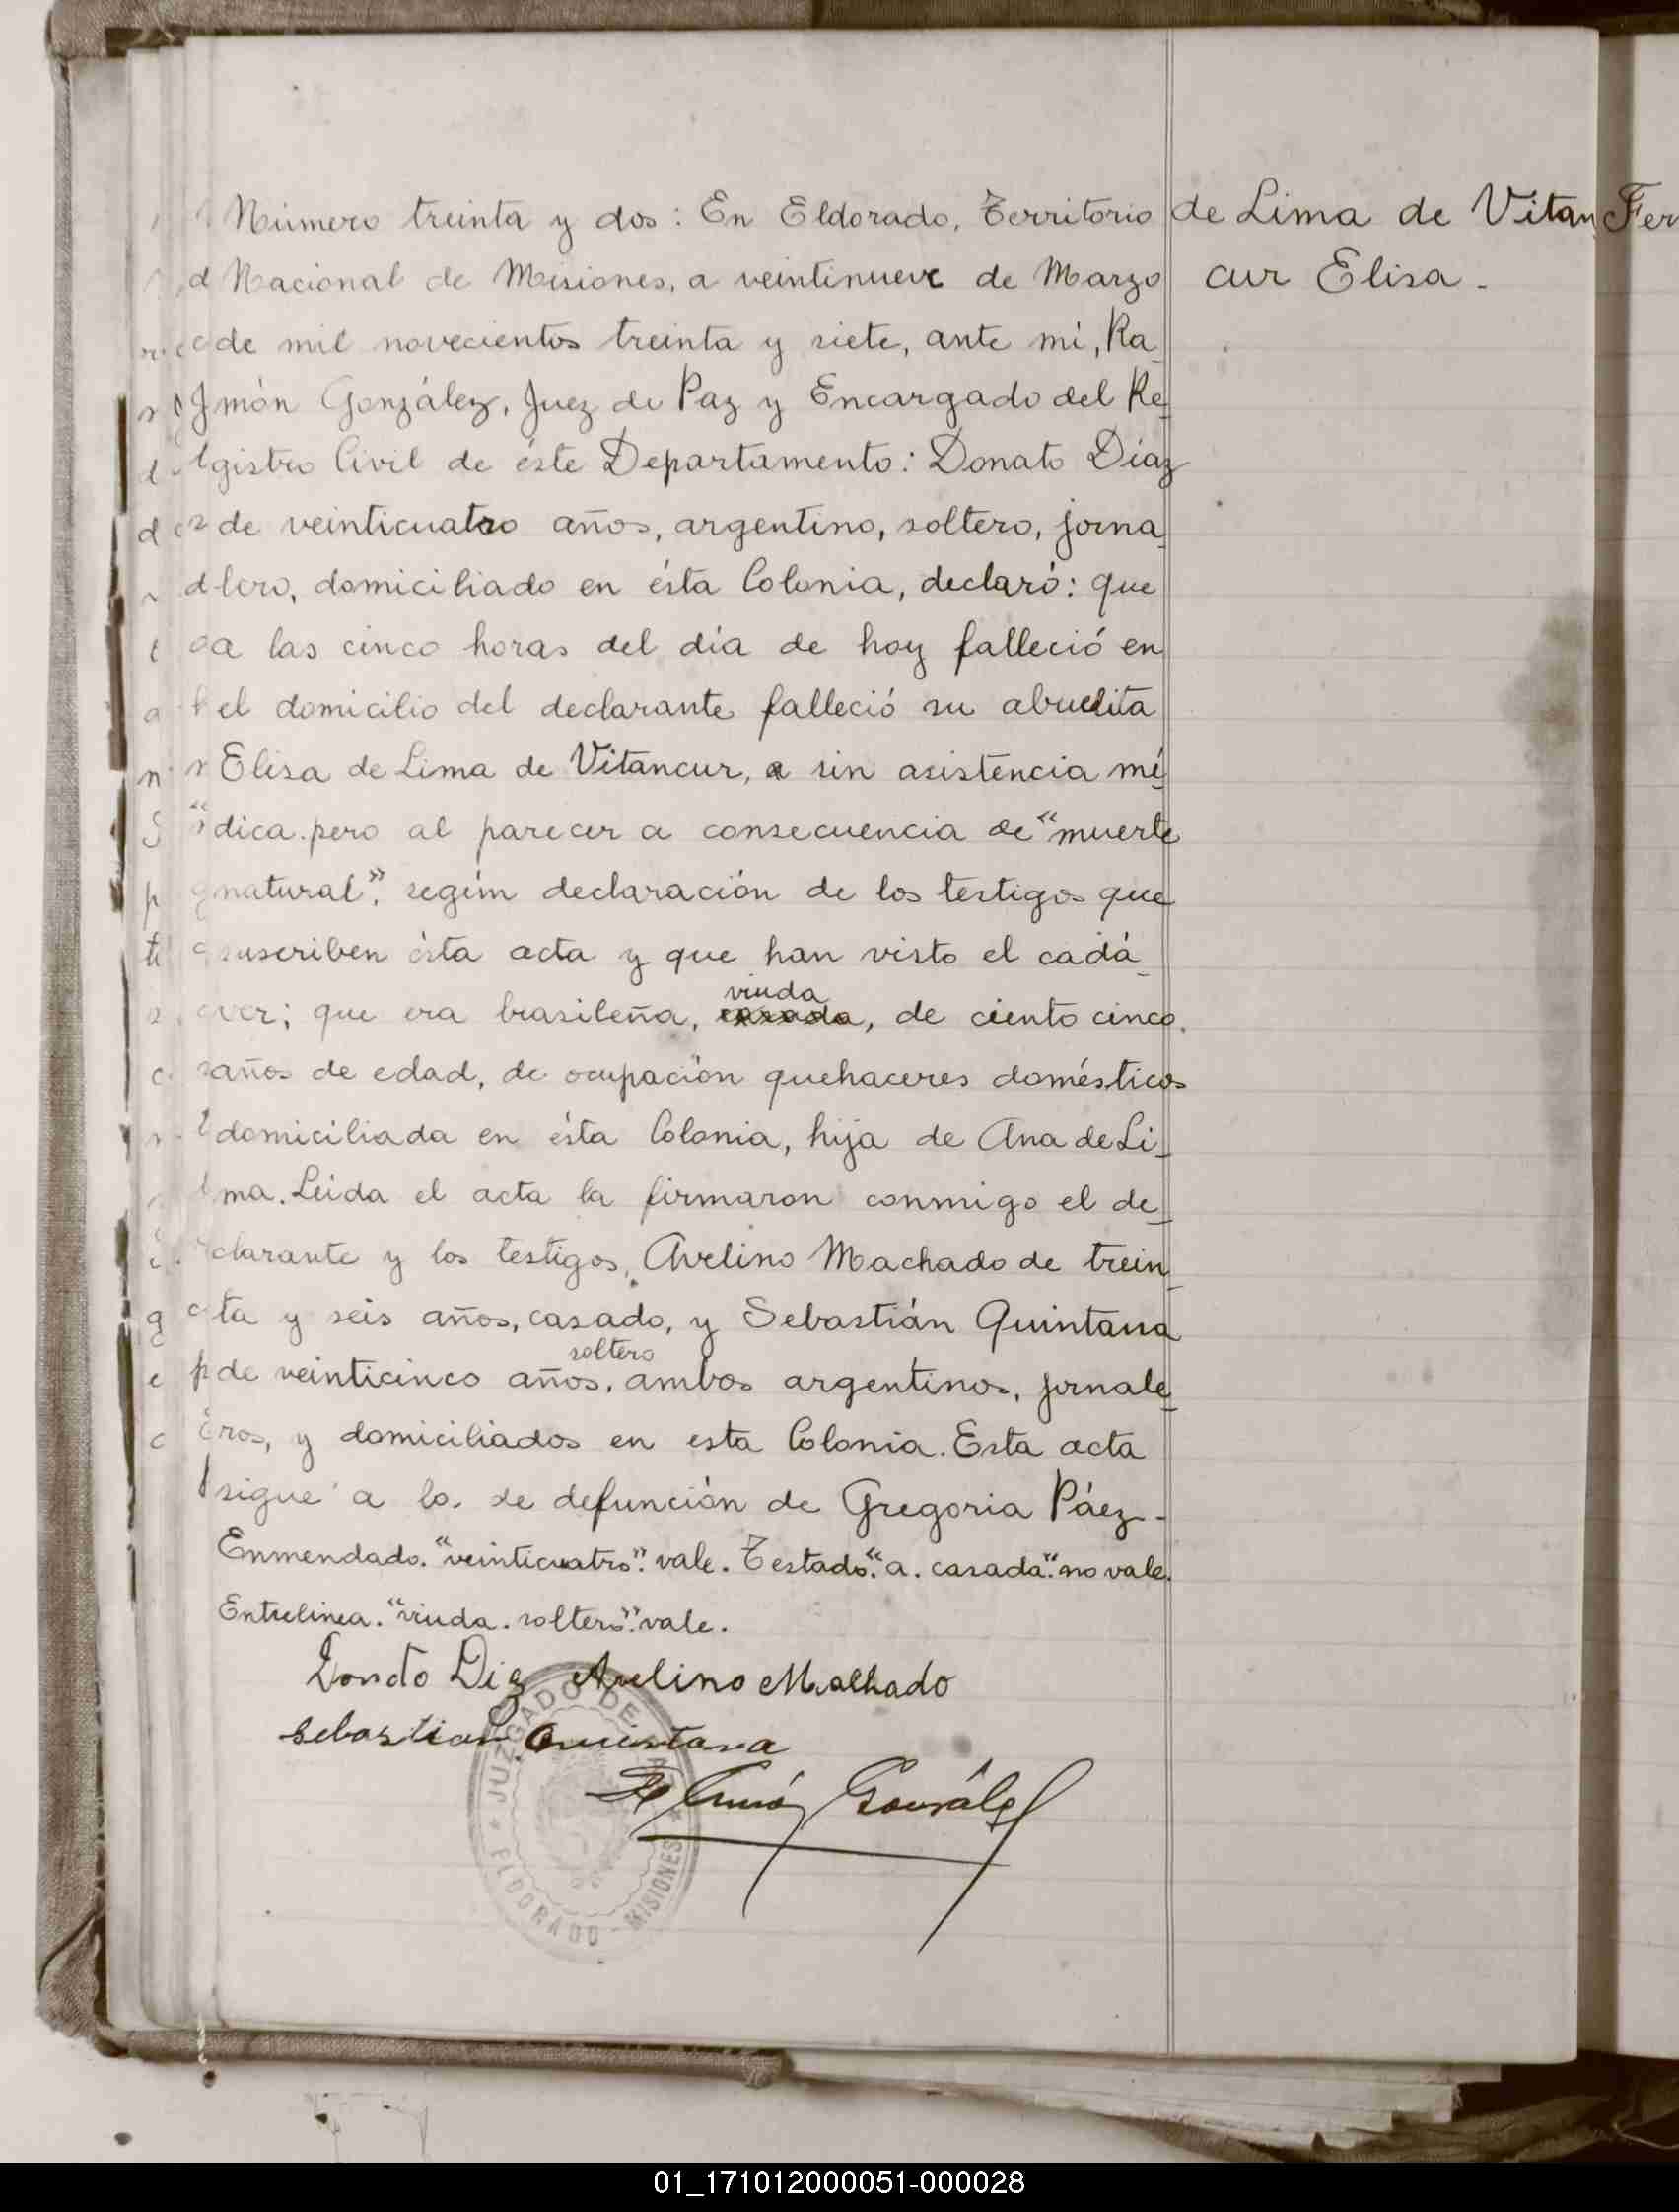 Número treinta y dos: En Eldorado, Territorio
Nacional de Misiones, a veintinueve de Marzo
de mil novecientos treinta y siete, ante mí, Ra_
món González, Juez de Paz y Encargado del Re_
gistro Civil de éste Departamento: Donato Díaz
de veinticuatro años, argentino, soltero, jorna_
lero, domiciliado en ésta Colonia, declaró: que
a las cinco horas del día de hoy falleció en
el domicilio del declarante falleció su abuelita
Elisa de Lima de Vitancur, a sin asistencia mé_
dica. pero al parecer a consecuencia de "muerte
natural". según declaración de los testigos que
suscriben ésta acta y que han visto el cadá_
ver; que era brasileña, casada, de ciento cinco
viuda
años de edad, de ocupación quehaceres domésticos
domiciliada en ésta Colonia, hija de Ana de Li_
ma. Leída el acta la firmaron conmigo el de_
clarante y los testigos, Avelino Machado de trein_
ta y seis años, casado, y Sebastián Quintana
soltero
de veinticinco años, ambos argentinos, jornale_
ros, y domiciliados en esta Colonia. Esta acta
sigue a la de defunción de Gregoria Páez.-
Enmendado. "veinticuatro". vale. Testado". a. casada". no vale.
Entrelinea. "viuda. soltero". vale.
Donato Diz Avelino Malhado
Sebastian Quintana
Ramón González
JUZGADO DE PAZ
ELDORADO - MISIONES
de Lima de Vitan
cur Elisa.-
Fer
01_171012000051-000028